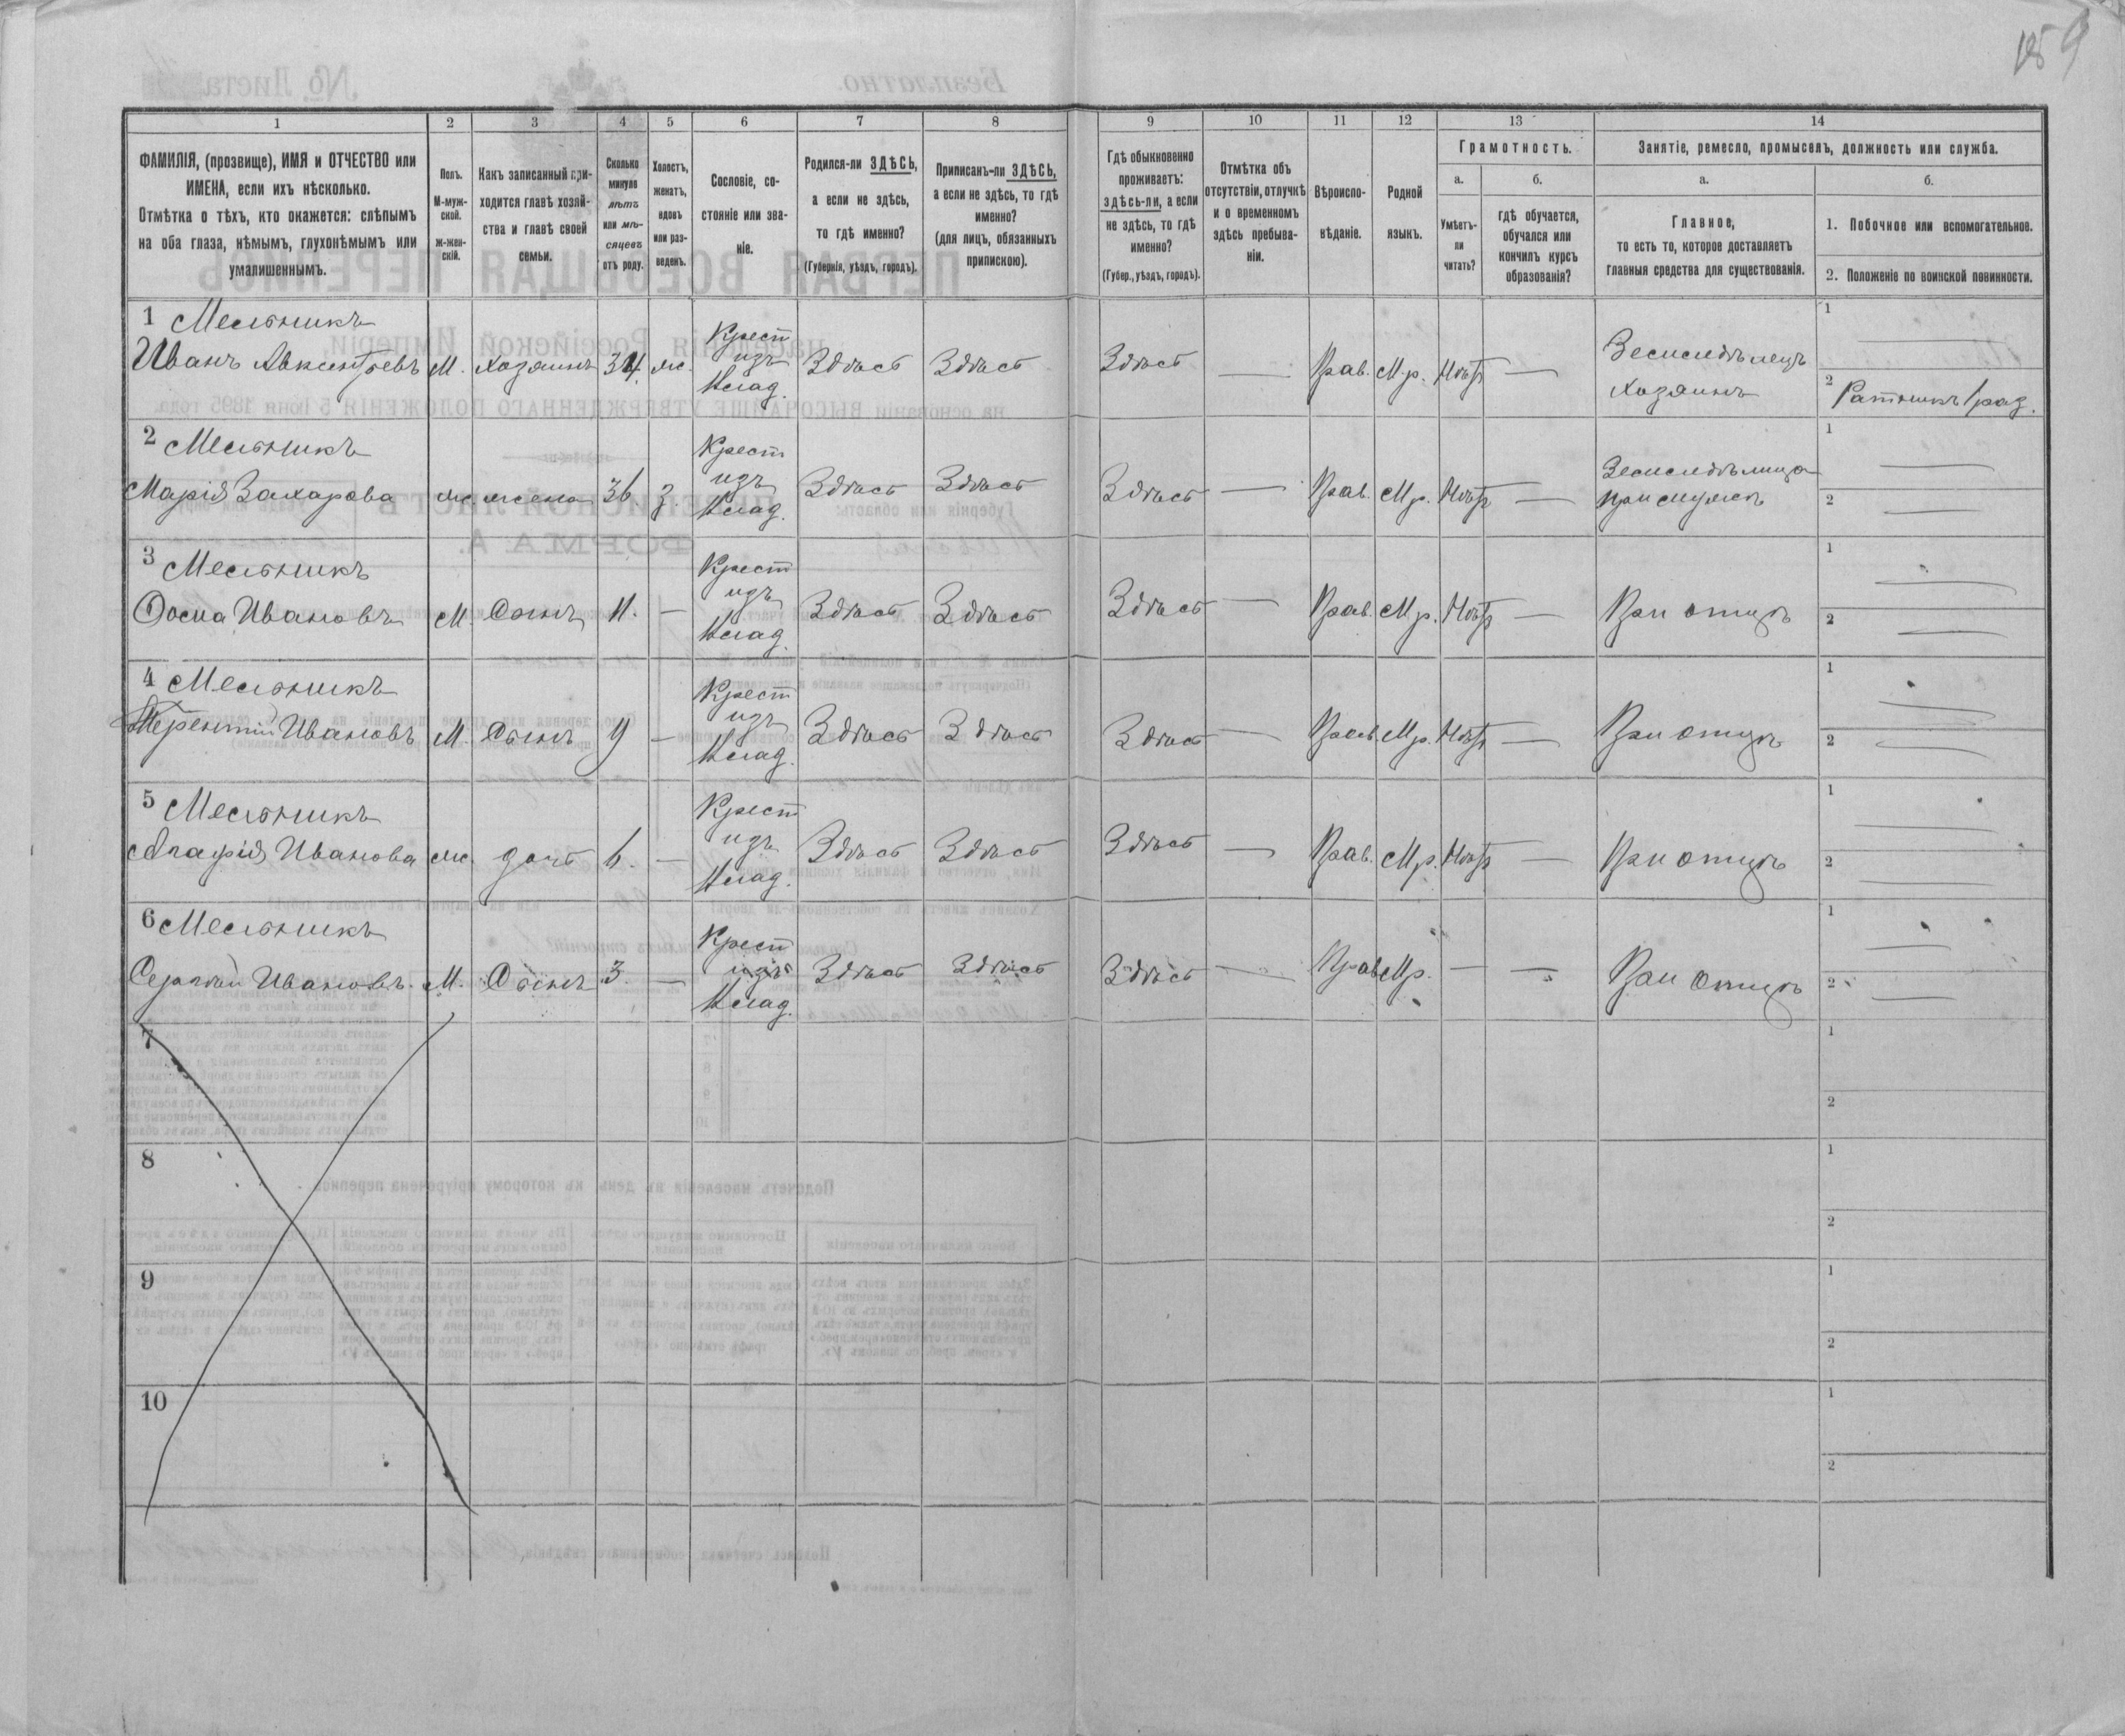 9
1 2 3 4 5 6 7 8 9 10 11 12 13 14
ФАМИЛІЯ, (прозвище), ИМЯ и ОТЧЕСТВО или
ИМЕНА, если ихъ нѣсколько.
Отмѣтка о тѣхъ, кто окажется: слѣпымъ
на оба глаза, нѣмымъ, глухонѣмымъ или
умалишеннымъ.
Полъ.
М-муж-
ской.
ж-жен-
скій.
Какъ записанный при-
ходится главѣ хозяй-
ства и главѣ своей
семьи.
Сколько
минуло
лѣтъ
или мѣ-
сяцевъ
отъ роду.
Холостъ,
женатъ,
вдовъ
или раз-
веденъ.
Сословіе, со-
стояніе или зва-
ніе.
Родился-ли ЗДѢСЬ,
а если не здѣсь,
то гдѣ именно?
(Губернія, уѣздъ, городъ).
Приписанъ-ли ЗДѢСЬ,
а если не здѣсь, то гдѣ
именно?
(для лицъ, обязанныхъ
припискою).
Гдѣ обыкновенно
проживаетъ:
здѣсь-ли, а если
не здѣсь, то гдѣ
именно?
(Губер., уѣздъ, городъ).
Отмѣтка объ
отсутствіи, отлучкѣ
и о временномъ
здѣсь пребыва-
ніи.
Вѣроиспо-
вѣданіе.
Родной
языкъ.
Грамотность.
а.
Умѣетъ-
ли
читать?
б.
гдѣ обучается,
обучался или
кончилъ курсъ
образованія?
Занятіе, ремесло, промыселъ, должность или служба.
а.
Главное,
то есть то, которое доставляетъ
главныя средства для существованія.
б.
1. Побочное или вспомогательное.
2. Положеніе по воинской повинности.
1 Мельникъ
Иванъ Авксентьевъ М. Хозяинъ 34 ж. Крест изъ Влад. Здѣсь Здѣсь Здѣсь — Прав. М.р. Нѣтъ — Земледѣлецъ Хозяинъ
1 —
2 Ратникъ 1 раз.
2 Мельникъ
Марія Захарова ж жена 36 З. Крест изъ Влад. Здѣсь Здѣсь Здѣсь — Прав. М.р. Нѣтъ — Земледѣлица при мужѣ
1 —
2 —
3 Мельникъ
Осипа Ивановъ М. Сынъ 11. — Крест изъ Влад. Здѣсь Здѣсь Здѣсь — Прав. М.р. Нѣтъ — При отцѣ
1 —
2 —
4 Мельникъ
Терентій Ивановъ М. Сынъ 9 — Крест изъ Влад. Здѣсь Здѣсь Здѣсь — Прав. М.р. Нѣтъ — При отцѣ
1 —
2 —
5 Мельникъ
Агафія Иванова ж. дочь 6. — Крест изъ Влад. Здѣсь Здѣсь Здѣсь — Прав. М.р. Нѣтъ — При отцѣ
1 —
2 —
6 Мельникъ
Сергѣй Ивановъ. М. Сынъ 3. — Крест изъ Влад. Здѣсь Здѣсь Здѣсь — Прав М.р. — — При отцѣ
1 —
2 —
7
1
2
8
1
2
9
1
2
10
1
2